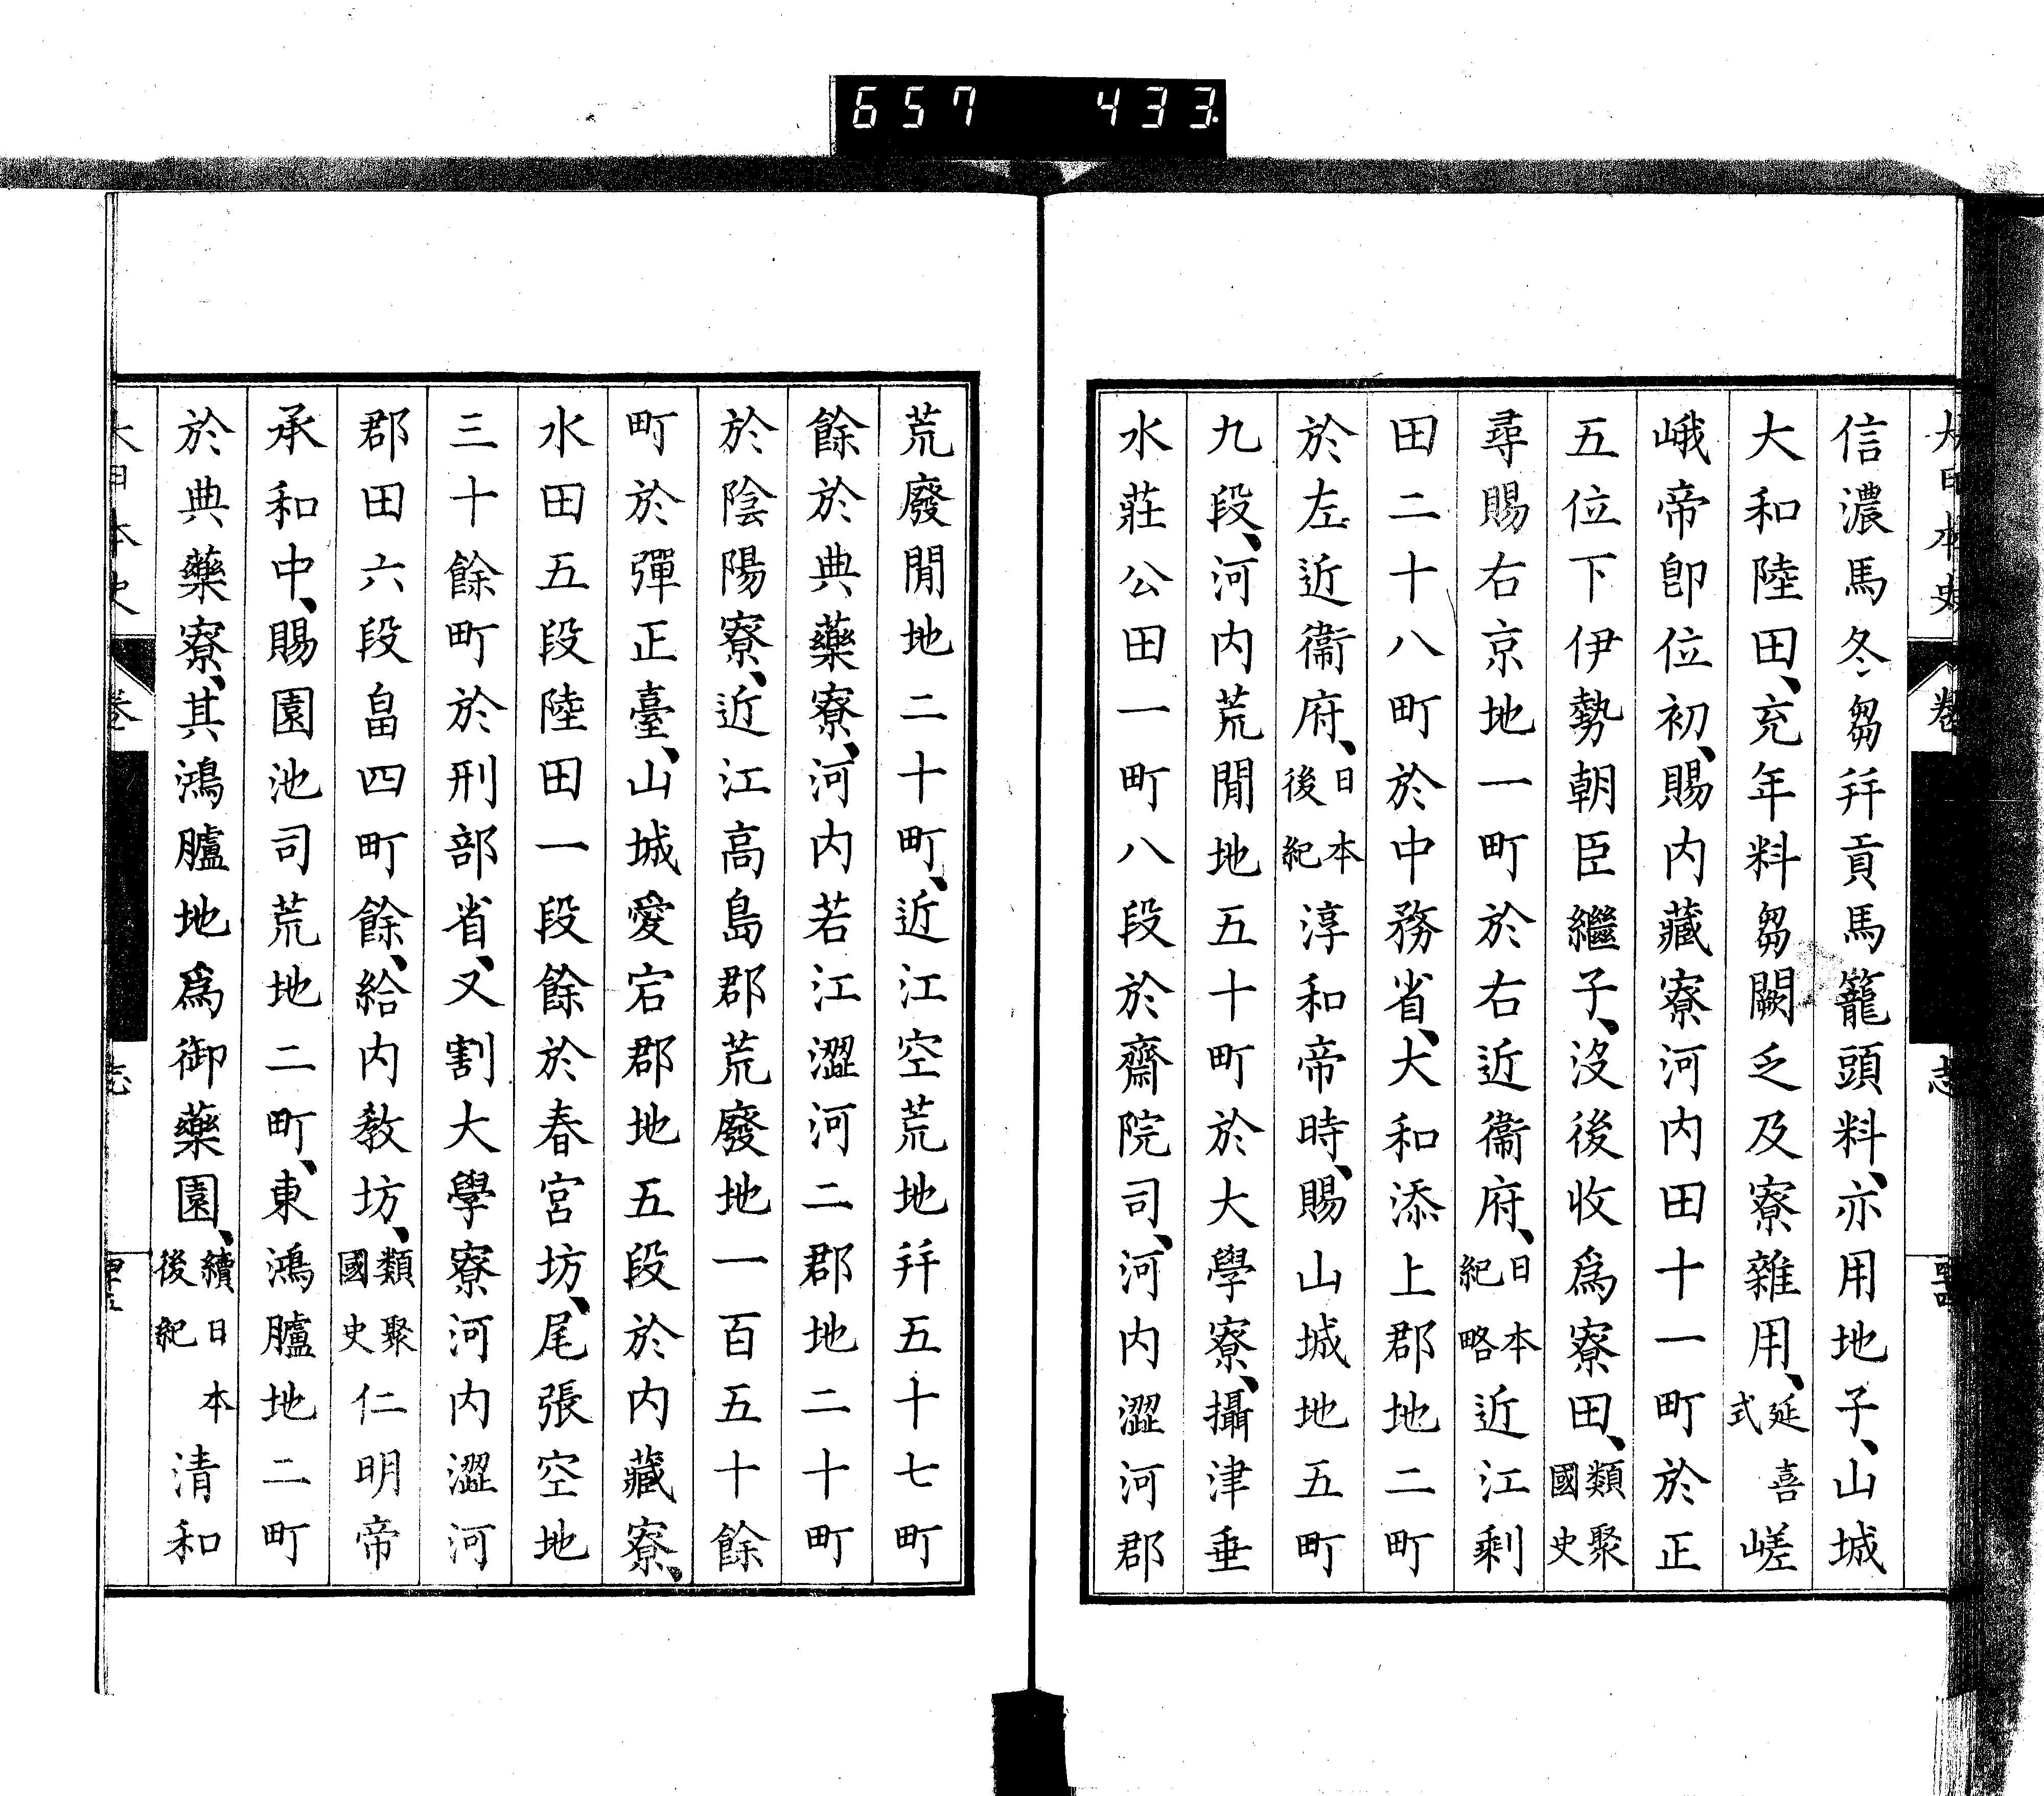 657 433
大日本史 卷 志
信濃馬冬蒭幷貢馬籠頭料、亦用地子、山城
大和陸田、充年料蒭闕乏及寮雜用、延喜式嵯
峨帝卽位初、賜內藏寮河內田十一町於正
五位下伊勢朝臣繼子、沒後收爲寮田、類聚國史
尋賜右京地一町於右近衞府、日本紀略近江剩
田二十八町於中務省、大和添上郡地二町
於左近衞府、日本後紀淳和帝時、賜山城地五町
九段、河內荒閒地五十町於大學寮、攝津垂
水莊公田一町八段於齋院司、河內澀河郡
荒廢閒地二十町、近江空荒地幷五十七町
餘於典藥寮、河內若江澀河二郡地二十町
於陰陽寮、近江高島郡荒廢地一百五十餘
町於彈正臺、山城愛宕郡地五段於內藏寮、
水田五段陸田一段餘於春宮坊、尾張空地
三十餘町於刑部省、又割大學寮河內澀河
郡田六段畠四町餘、給內敎坊、類聚國史仁明帝
承和中、賜園池司荒地二町、東鴻臚地二町
於典藥寮、其鴻臚地爲御藥園、續日本後紀清和
大日本史 卷 志